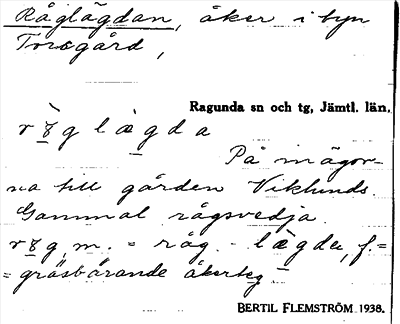 Råglägdan, åker i byn
Torsgård,
Ragunda sn och tg, Jämtl. län.
rɤ̀g lægda
På inägor-
na till gården Viklunds.
Gammal rågsvedja.
rɤg, m. = råg - lægda, f. =
= gräsbärande åkerteg
BERTIL FLEMSTRÖM 1938.